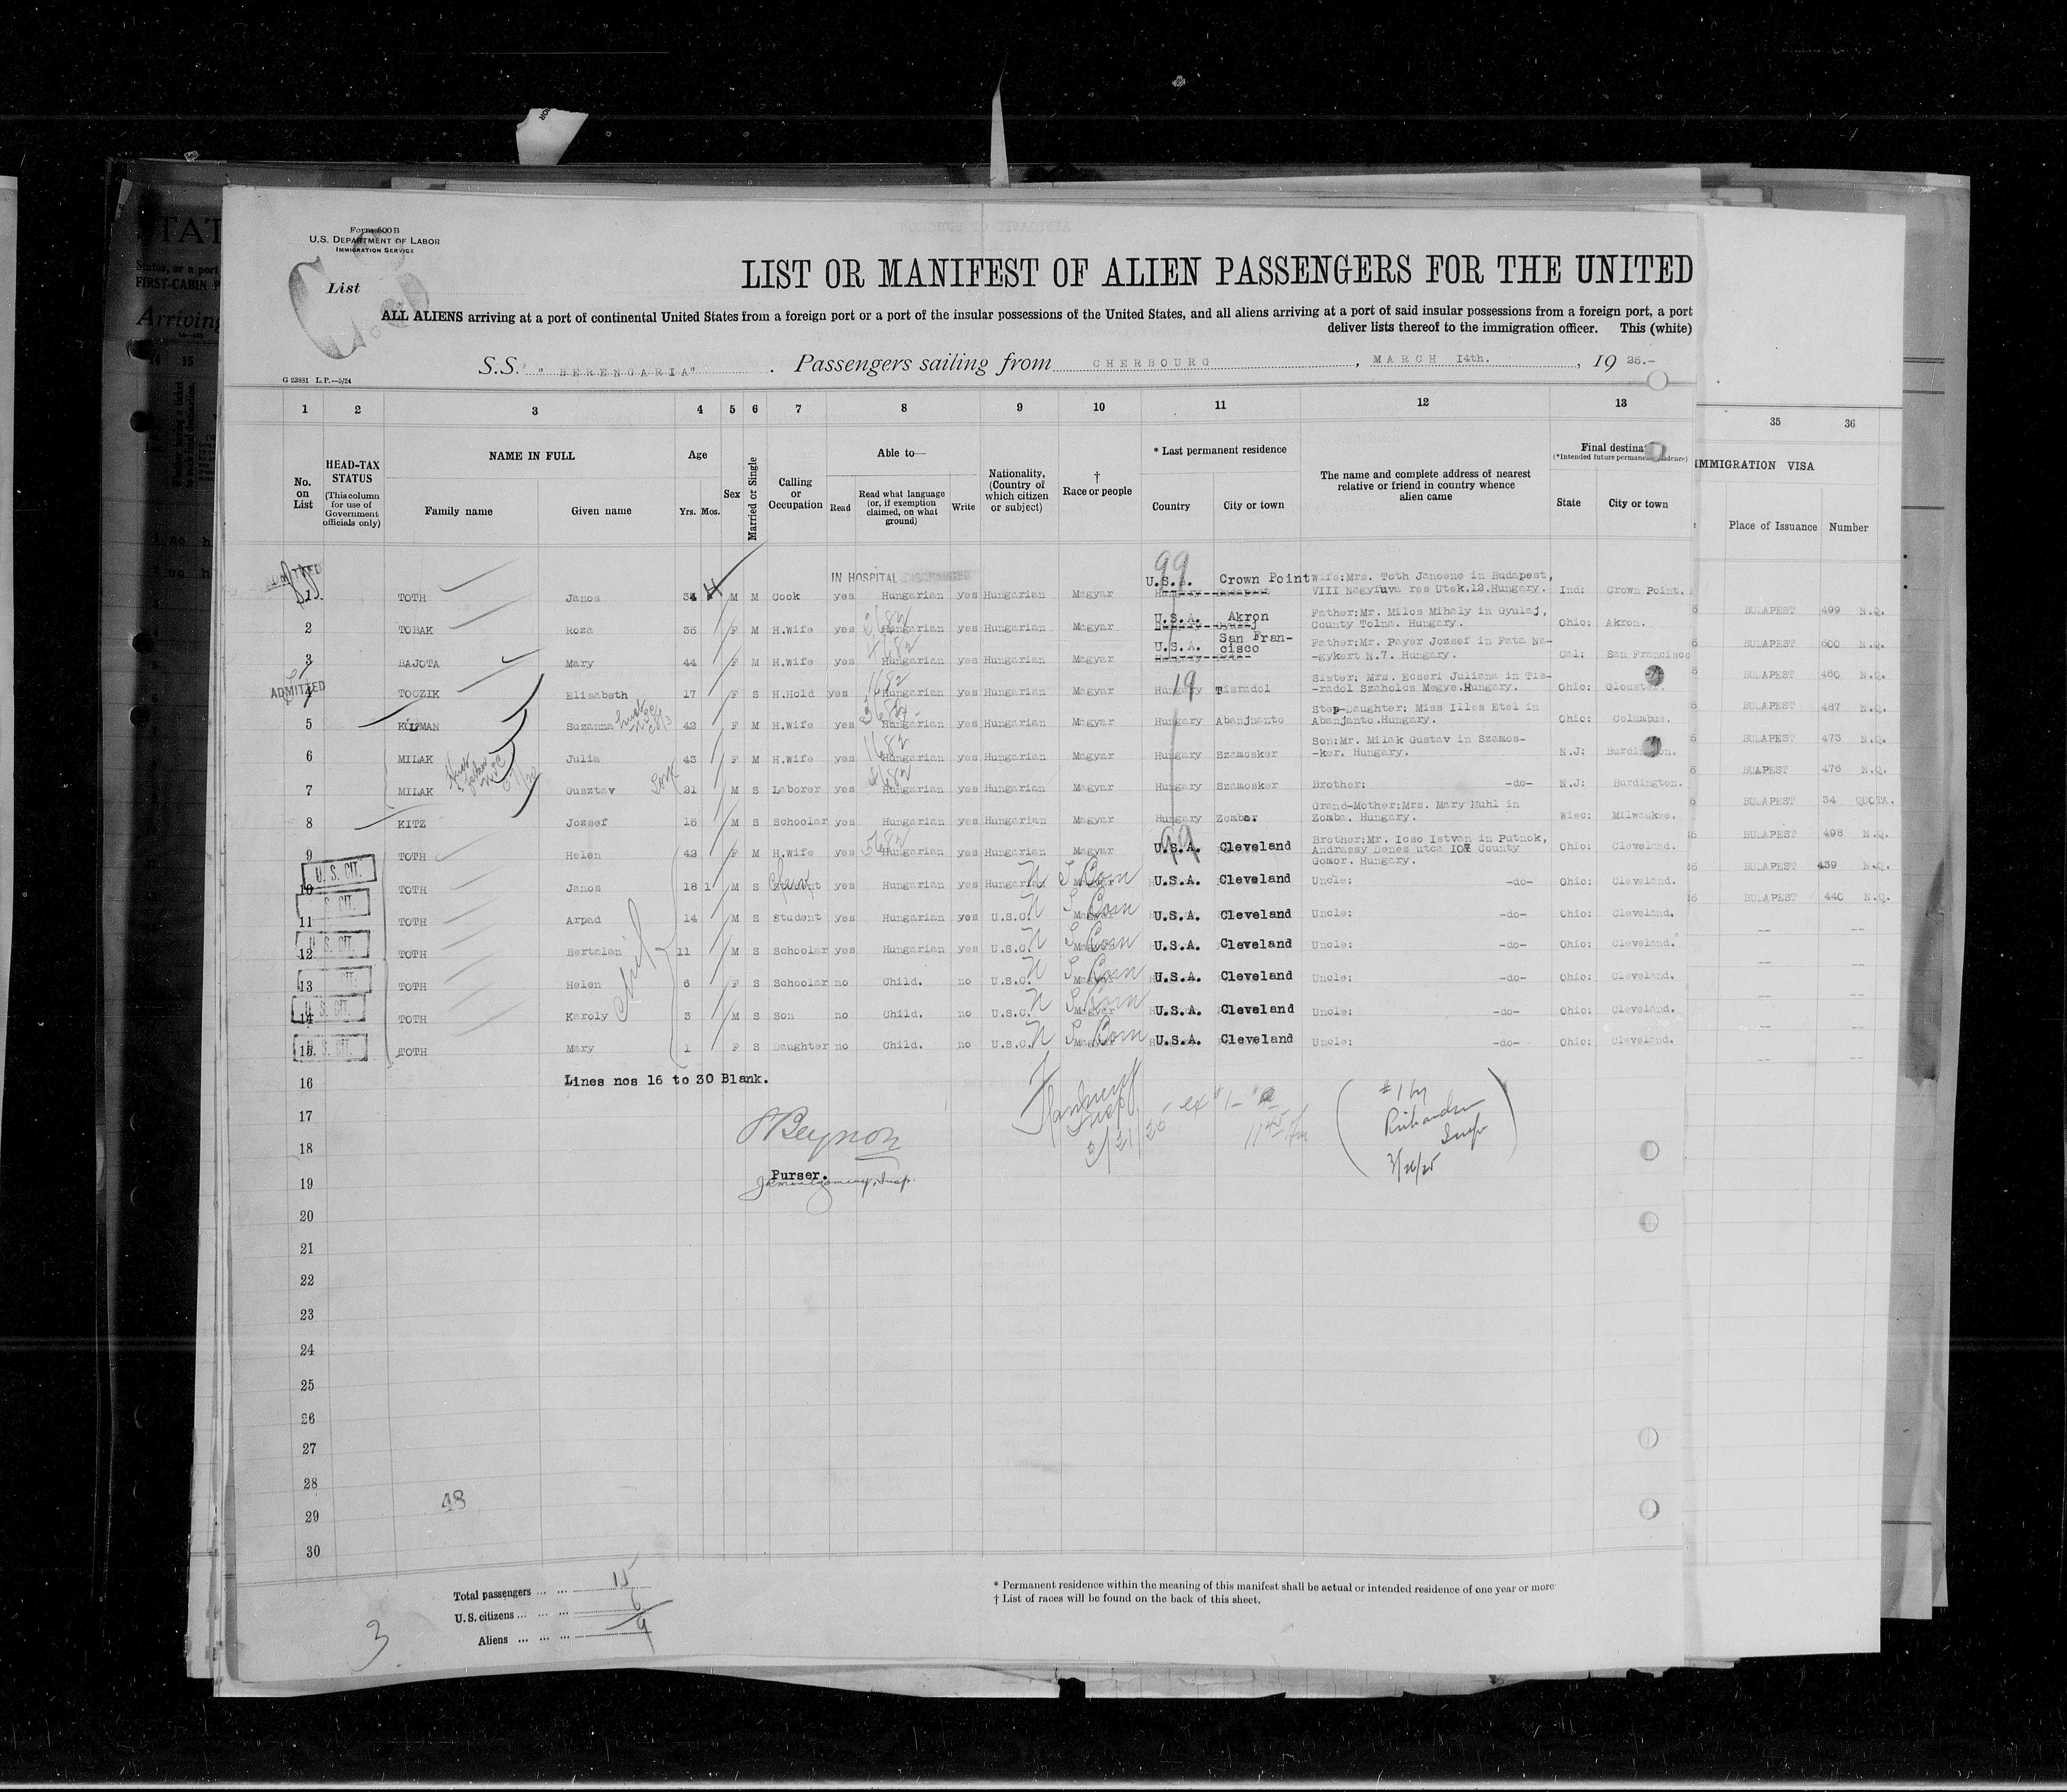 Form 500 B
U.S. DEPARTMENT OF LABOR
IMMIGRATION SERVICE
List
LIST OR MANIFEST OF ALIEN PASSENGERS FOR THE UNITED
ALL ALIENS arriving at a port of continental United States from a foreign port or a port of the insular possessions of the United States, and all aliens arriving at a port of said insular possessions from a foreign port, a port
deliver lists thereof to the immigration officer. This (white)
S.S. "BERENGARIA" . Passengers sailing from CHERBOURG , MARCH 14th. , 19 25.-
G 23881 L.P.—5/24
1 2 3 4 5 6 7 8 9 10 11 12 13 35 36
No. on List
HEAD-TAX STATUS (This column for use of Government officials only)
NAME IN FULL
Family name Given name
Age
Yrs. Mos.
Sex
Married or Single
Calling or Occupation
Able to—
Read Read what language (or, if exemption claimed, on what ground) Write
Nationality, (Country of which citizen or subject)
† Race or people
* Last permanent residence
Country City or town
The name and complete address of nearest relative or friend in country whence alien came
Final destina
(*Intended future permanent
State City or town
IMMIGRATION VISA
Place of Issuance Number
ADMITTED
IN HOSPITAL
99
1 TOTH Janos 34 M M Cook yes Hungarian yes Hungarian Magyar U.S.A. Crown Point Wife:Mrs. Toth Janosne in Budapest, VIII Nagyfuva ros Utek.12.Hungary. Ind: Crown Point.
2 TOBAK Roza 35 F M H.Wife yes Hungarian yes Hungarian Magyar U.S.A. Akron Father:Mr. Milos Mihaly in Gyulaj, County Tolna. Hungary. Ohio: Akron. BUDAPEST 499 N.Q.
3 BAJOTA Mary 44 F M H.Wife yes Hungarian yes Hungarian Magyar U.S.A. San Francisco Father:Mr. Payer Jozsef in Fata Na-gykort N.7. Hungary. Cal: San Francisco BUDAPEST 600 N.Q.
ADMITTED
19
4 TOCZIK Elisabeth 17 F S H.Hold yes Hungarian yes Hungarian Magyar Hungary Tisradol Sister: Mrs. Ecseri Juliana in Tis-radol Szaholcs Megye.Hungary. Ohio: Glouster. BUDAPEST 460 N.Q.
5 KOLZMAN Suzanna 42 F M H.Wife yes Hungarian yes Hungarian Magyar Hungary Abanjnanto Step-Daughter: Miss Illes Etel in Abanjanto.Hungary. Ohio: Columbus. BUDAPEST 487 N.Q.
6 MILAK Julia 43 F M H.Wife yes Hungarian yes Hungarian Magyar Hungary Szamosker Son:Mr. Milak Gustav in Szamos--ker. Hungary. N.J: Burdington. BUDAPEST 473 N.Q.
7 MILAK Gusztav 21 M S Laborer yes Hungarian yes Hungarian Magyar Hungary Szamosker Brother: -do- N.J: Burdington. BUAPEST 476 N.Q.
8 KITZ Jozsef 15 M S Schoolar yes Hungarian yes Hungarian Magyar Hungary Zombor Grand-Mother:Mrs. Mary Muhl in Zomba. Hungary. Wisc: Milwaukee. BUDAPEST 34 QUOTA.
9 TOTH Helen 42 F M H.Wife yes Hungarian yes Hungarian Magyar U.S.A. Cleveland Brother:Mr. Icso Istvan in Putnok, Andrassy Denes utca 107 County Gomor. Hungary. Ohio: Cleveland. BUDAPEST 498 N.Q.
10 U. S. CIT. TOTH Janos 18 1 M S Student yes Hungarian yes Hungarian Magyar U.S.A. Cleveland Uncle: -do- Ohio: Cleveland. BUDAPEST 439 N.Q.
11 S. CIT. TOTH Arpad 14 M S Student yes Hungarian yes U.S.C. Magyar U.S.A. Cleveland Uncle: -do- Ohio: Cleveland. BUDAPEST 440 N.Q.
12 U. S. CIT. TOTH Bertalan 11 M S Schoolar yes Hungarian yes U.S.C. Magyar U.S.A. Cleveland Uncle: -do- Ohio: Cleveland. --
13 CIT. TOTH Helen 6 F S Schoolar no Child. no U.S.C. Magyar U.S.A. Cleveland Uncle: -do- Ohio: Cleveland. --
14 U. S. CIT. TOTH Karoly 3 M S Son no Child. no U.S.C. Magyar U.S.A. Cleveland Uncle: -do- Ohio: Cleveland. --
15 U. S. CIT. TOTH Mary 1 F S Daughter no Child. no U.S.C. Magyar U.S.A. Cleveland Uncle: -do- Ohio: Cleveland. --
16 Lines nos 16 to 30 Blank.
17
18
Beynon
Purser.
19
20
21
22
23
24
25
26
27
28
29
30
#1 by Richardson Insp
48
Total passengers ... ... 15
U.S. citizens ... ... ... 6
Aliens ... ... ... 9
3
* Permanent residence within the meaning of this manifest shall be actual or intended residence of one year or more
† List of races will be found on the back of this sheet.